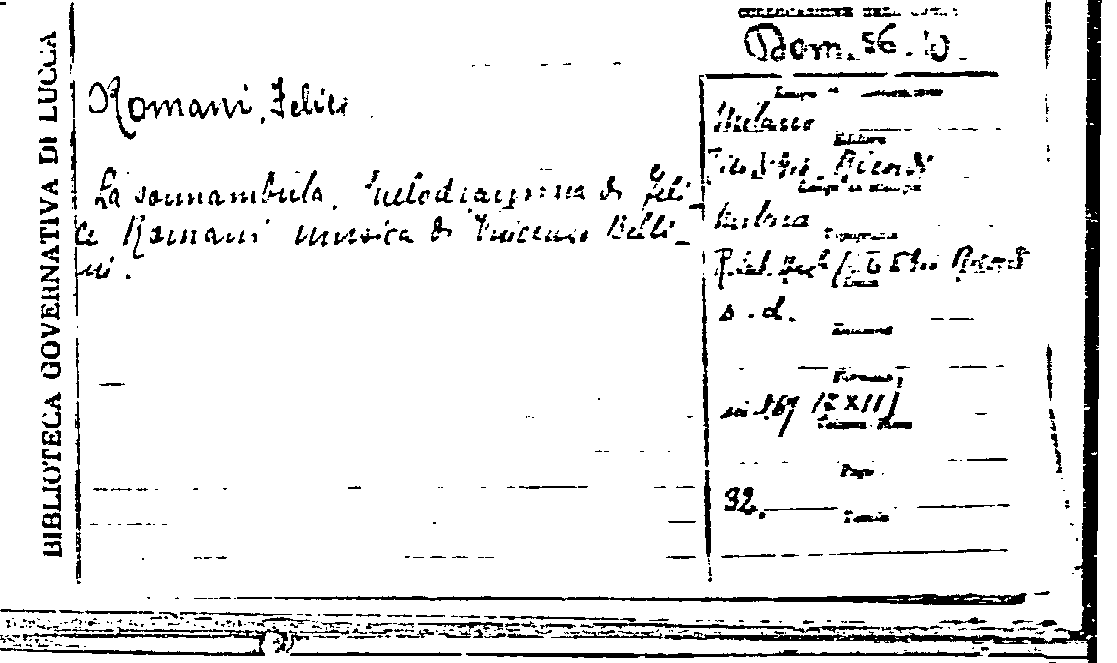 BIBLIOTECA GOVERNATIVA DI LUCCA
COLLOCAZIONE DELL'OPERA
Dom. 56.
Romani, Felice
La sonnambula. Melodramma di Feli-
ce Romani musica di Vincenzo Belli-
ni.
Luogo di
Milano
Editore
Tito di Gio. Ricordi
Luogo di stampa
Milano
Tipografia
Ricordi
s. d.
Edizione
Formato
in
Volume
Pagg.
32.
Tavole